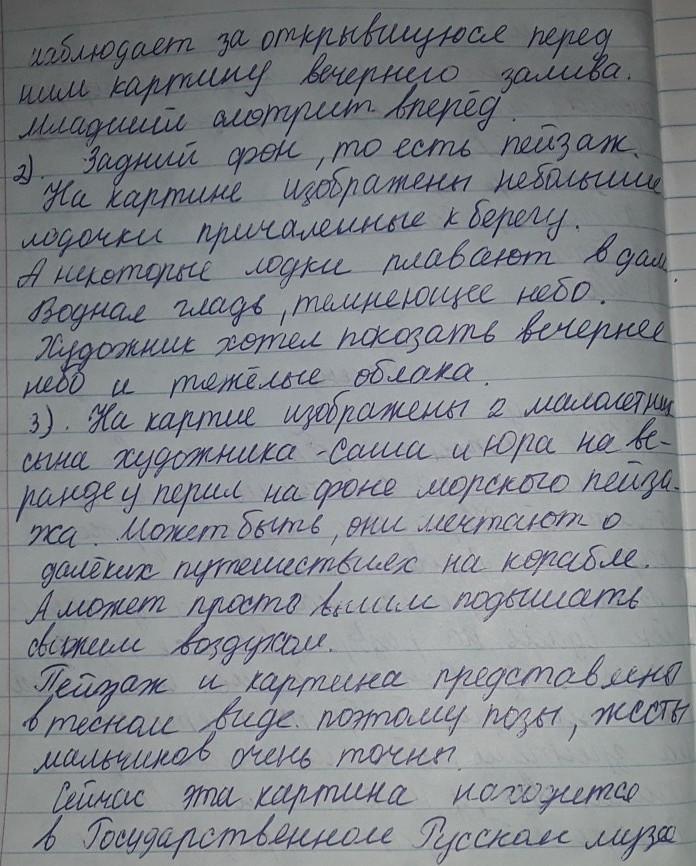 наблюдает за открывшуюся перед
ним картину вечернего залива.
Младший смотрит вперёд.
2). Задний фон, то есть пейзаж.
На картине изображены небольшие
лодочки причаленные к берегу.
А некоторые лодки плавают в дали.
Водная гладь, темнеющее небо.
Художник хотел показать вечернее
небо и тяжёлые облака.
3). На картие изображены 2 малолетних
сына художника - Саша и Юра на ве-
ранде у перил на фоне морского пейза-
жа. Может быть, они мечтают о
далёких путешествиях на корабле.
А может просто вышли подышать
свежим воздухом.
Пейзаж и картина представлены
в тесном виде. поэтому позы, жесты
мальчиков очень точны.
Сейчас эта картина находится
в Государственном Русском музее